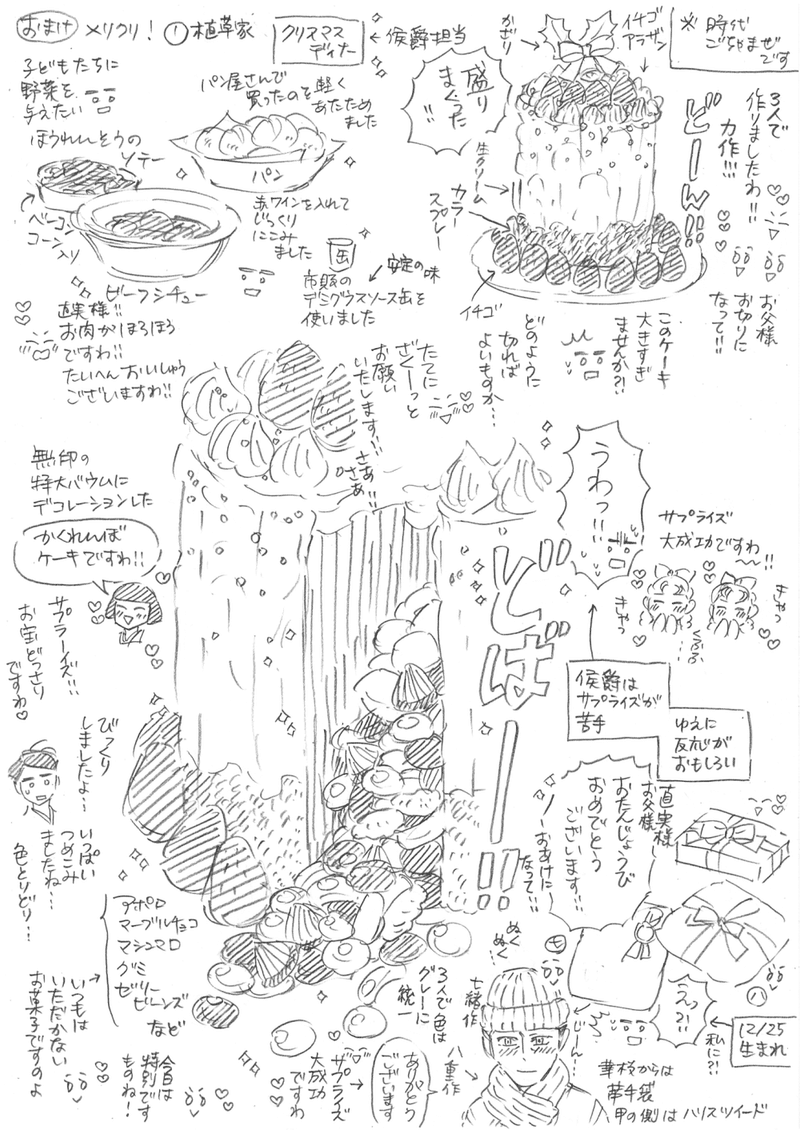 おまけ メリクリ! ①植草家
クリスマス
ディナー
←侯爵担当
※時代
ごちゃまぜ
です
子どもたちに
野菜を
与えたい
ほうれんそうの
ソテー
ベーコン
コーン
入り
パン屋さんで
買ったのを軽く
あたため
ました
パン
赤ワインを入れて
じっくり
にこみ
ました
ビーフシチュー
缶
安定の味
市販の
デミグラスソース缶を
使いました
直実様!!
お肉がほろほろ
ですわ!!
たいへんおいしゅう
ございますわ!!
かざり
イチゴ
アラザン
盛り
まくった
!!
生クリーム
カラー
スプレー
イチゴ
どーん!!
3人で
作りましたわ!!
力作!!!
お父様
お切りに
なって!!
このケーキ
大きすぎ
ませんか?!
どのように
切れば
よいものか…
たてに
ざくーっと
お願い
いたします!!
さあ!!
さあ!!
無印の
特大バウムに
デコレーションした
かくれんぼ
ケーキですわ!!
サプラーイズ!!
お宝どっさり
ですわ
びっくり
しましたよ…
いっぱい
つめこみ
ましたね…
色とりどり…
うわっ!!
どばーーー!!
サプライズ
大成功ですわ
〜!!
きゃっ
きゃっ
くふふ
侯爵は
サプライズが
苦手
ゆえに
反応が
おもしろい
直実様
お父様
おたんじょうび
おめでとう
ございます!!
おあけに
なって!!
アポロ
マーブルチョコ
マシュマロ
グミ
ゼリー
ビーンズ
など
いつもは
いただかない
お菓子ですのよ
今日は
特別です
ものね!
サプライズ
大成功
ですわ
3人で色は
グレーに
統一
ぬく
ぬく!
七緒作
八重作
ありがとう
ございます
じーん…
七
八
うっ?!
私に?!
12/25
生まれ
華様からは
革手袋
甲の側はハリスツイード